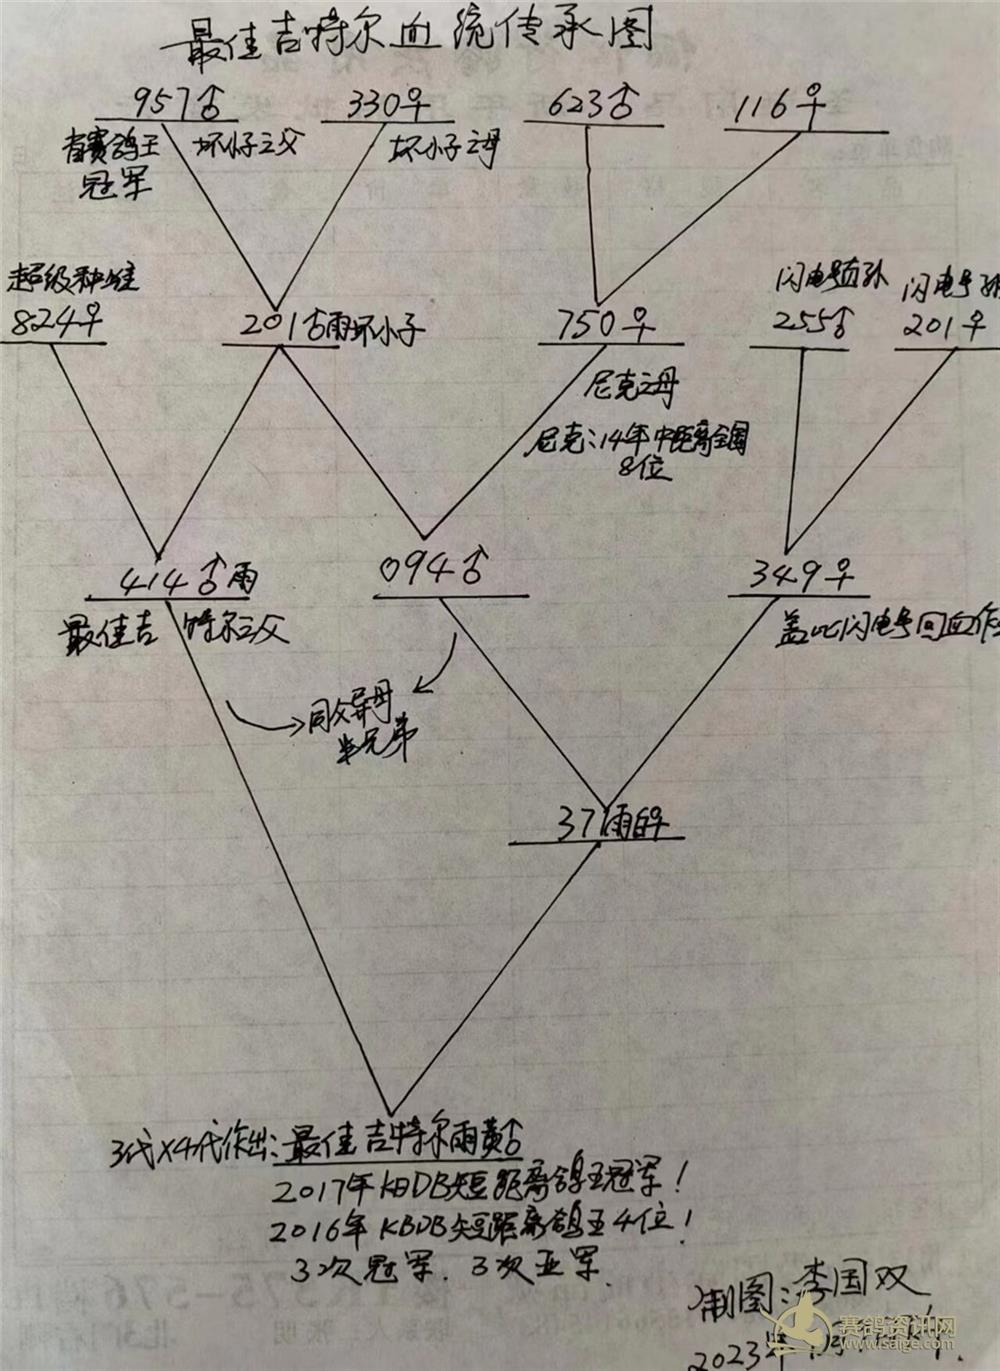 最佳吉特尔血统传承图
957♂ 330♀ 623♂ 116♀
有赛鸽王 坏小子之父 坏小子之母
冠军
超级种雌 闪电号直孙 闪电号孙
824♀ 201♂雨坏小子 750♀ 255♂ 201♀
尼克之母
尼克:14年中距离全国
8位
414♂雨 094♂ 349♀
最佳吉特尔之父 盖比闪电号回血作
同父异母
半兄弟
37雨白♀
3代X4代作出:最佳吉特尔雨黄♂
2017年KBDB短距离鸽王冠军!
2016年KBDB短距离鸽王4位!
3次冠军.3次亚军.
制图:李国双
2023年
赛鸽资讯网
www.saige.com